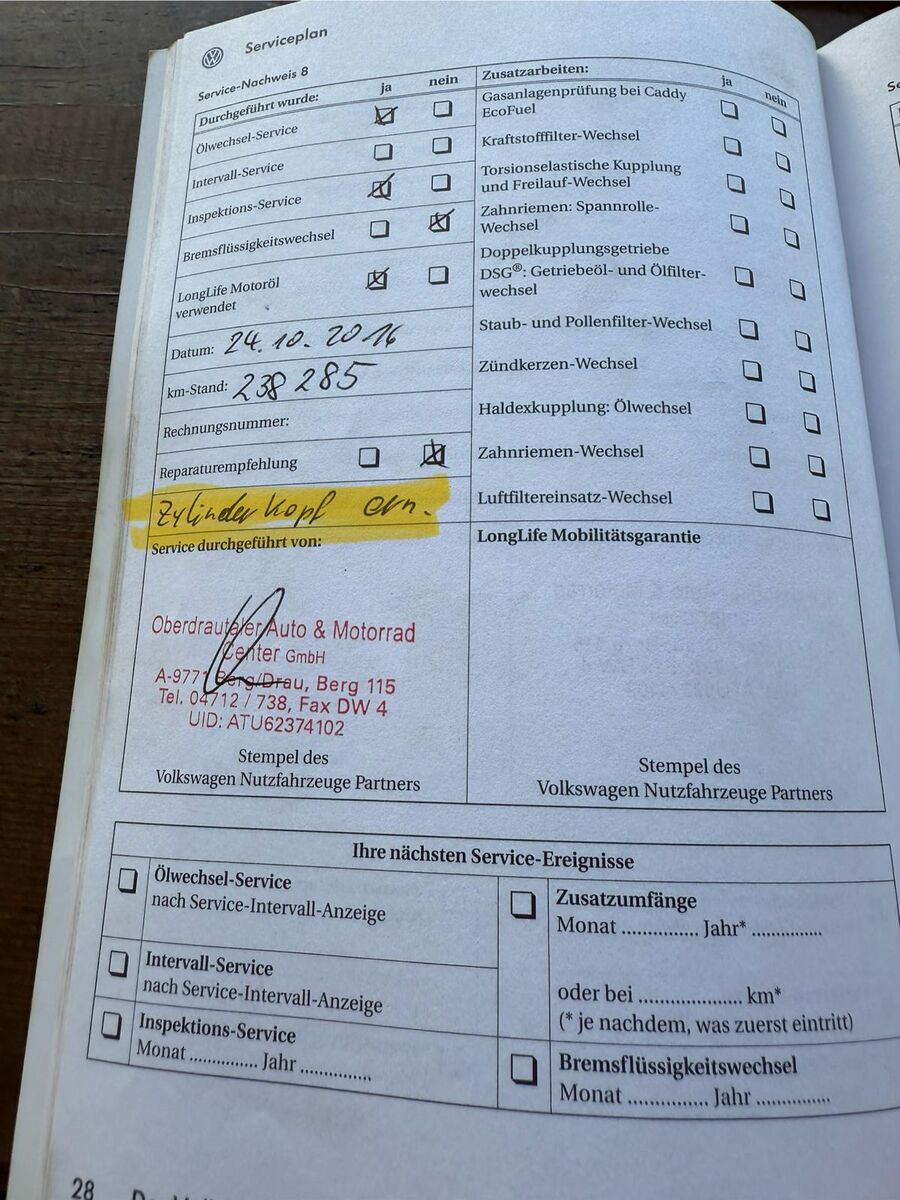 Serviceplan
Service-Nachweis 8
Durchgeführt wurde: ja nein
Ölwechsel-Service
Intervall-Service
Inspektions-Service
Bremsflüssigkeitswechsel
LongLife Motoröl
verwendet
Datum: 24.10.2016
km-Stand: 238 285
Rechnungsnummer:
Reparaturempfehlung
Zylinderkopf ern.
Service durchgeführt von:
Oberdrautaler Auto & Motorrad
Center GmbH
A-9771 Berg/Drau, Berg 115
Tel. 04712 / 738, Fax DW 4
UID: ATU62374102
Stempel des
Volkswagen Nutzfahrzeuge Partners
Zusatzarbeiten: ja nein
Gasanlagenprüfung bei Caddy
EcoFuel
Kraftstofffilter-Wechsel
Torsionselastische Kupplung
und Freilauf-Wechsel
Zahnriemen: Spannrolle-
Wechsel
Doppelkupplungsgetriebe
DSG®: Getriebeöl- und Ölfilter-
wechsel
Staub- und Pollenfilter-Wechsel
Zündkerzen-Wechsel
Haldexkupplung: Ölwechsel
Zahnriemen-Wechsel
Luftfiltereinsatz-Wechsel
LongLife Mobilitätsgarantie
Stempel des
Volkswagen Nutzfahrzeuge Partners
Ihre nächsten Service-Ereignisse
Ölwechsel-Service
nach Service-Intervall-Anzeige
Intervall-Service
nach Service-Intervall-Anzeige
Inspektions-Service
Monat .............. Jahr ...............
Zusatzumfänge
Monat ............... Jahr* ...............
oder bei .................... km*
(* je nachdem, was zuerst eintritt)
Bremsflüssigkeitswechsel
Monat ................ Jahr ...............
28